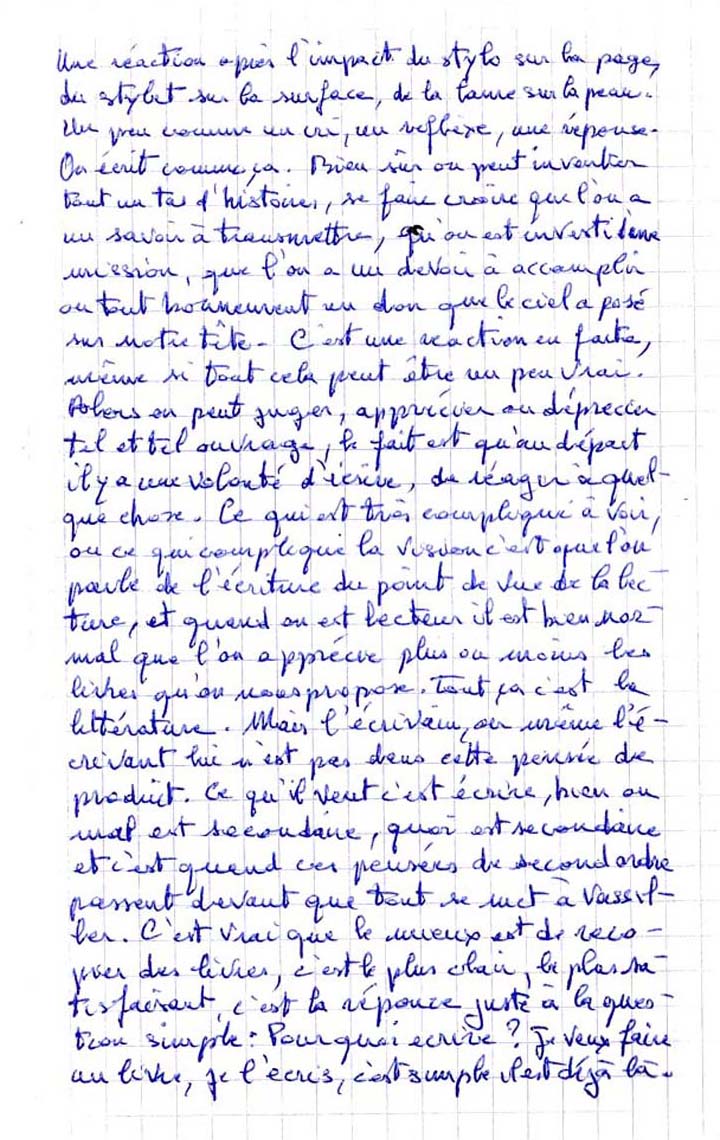 Une réaction après l'impact du stylo sur la page,
du stylet sur la surface, de la lame sur la peau.
Un peu comme un cri, un réflexe, une réponse.
On écrit comme ça. Bien sûr on peut inventer
tout un tas d'histoires, se faire croire que l'on a
un savoir à transmettre, qu'on est investi d'une
mission, que l'on a un devoir à accomplir
ou tout bonnement un don que le ciel a posé
sur notre tête. C'est une réaction en faite,
même si tout cela peut être un peu vrai.
Alors on peut juger, apprécier ou déprécier
tel et tel ouvrage, le fait est qu'au départ
il y a une volonté d'écrire, de réagir à quel-
que chose. Ce qui est très compliqué à voir,
ou ce qui complique la vision c'est que l'on
parle de l'écriture du point de vue de la lec-
ture, et quand on est lecteur il est bien nor-
mal que l'on apprécie plus ou moins les
livres qu'on nous propose. Tout ça c'est la
littérature. Mais l'écrivain, ou même l'é-
crivant lui n'est pas dans cette pensée de
produit. Ce qu'il veut c'est écrire, bien ou
mal est secondaire, quoi est secondaire
et c'est quand ces pensées de second ordre
passent devant que tout se met à vassil-
ler. C'est vrai que le mieux est de reco-
pier des livres, c'est le plus clair, le plus sa-
tisfaisant, c'est la réponse juste à la ques-
tion simple : Pourquoi écrire ? Je veux faire
un livre, je l'écris, c'est simple il est déjà là.